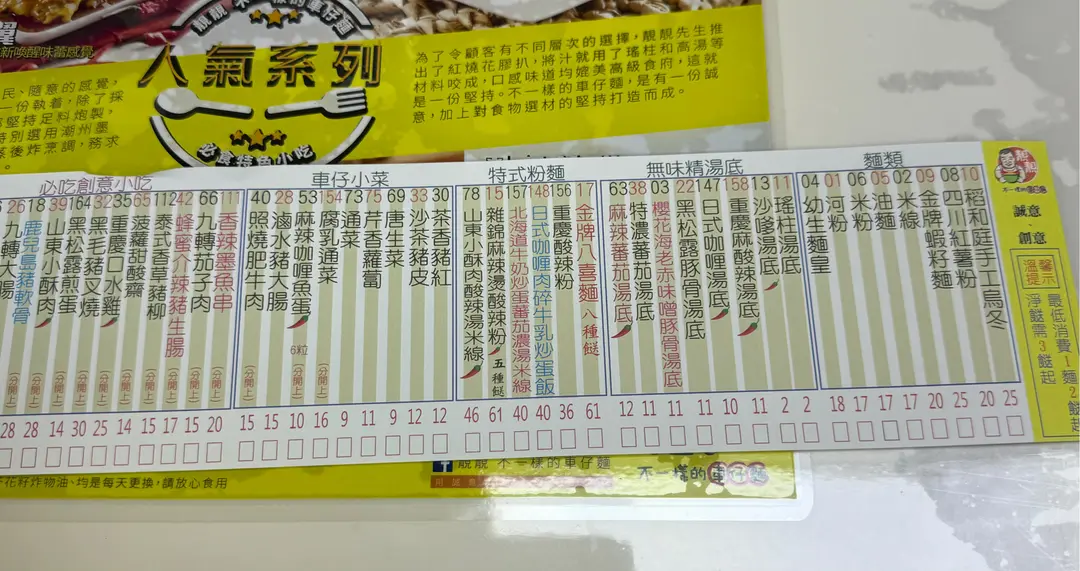 新喚醒味蕾感覺
人氣系列
必食特色小吃
民、隨意的感覺,
一份執着,除了採
堅持足料炮製,
特別選用潮州墨
蒸後炸烹調,務求
為了令顧客有不同層次的選擇,靚靚先生推
出了紅燒花膠扒,將汁就用了瑤柱和高湯等
材料咬成,口感味道均媲美高級食府,這就
是一份堅持。不一樣的車仔麵,是有一份誠
意,加上對食物選材的堅持打造而成。
必吃創意小吃
26 18 39 164 32 35 65 112 242 66 11
九轉大腸
鹿兒島豬軟骨 (分開上)
山東小酥肉 (分開上)
黑松露煎蛋 (分開上)
黑毛豬叉燒 (分開上)
重慶口水雞 (分開上)
菠蘿甜酸齋 (分開上)
泰式香草豬柳 (分開上)
蜂蜜介辣豬生腸 (分開上)
九轉茄子肉 (分開上)
香辣墨魚串 (分開上)
28 28 14 30 25 14 15 17 15 20
車仔小菜
40 28 53 154 73 75 69 33 30
照燒肥牛肉 (分開上)
滷水豬大腸
麻辣咖喱魚蛋 6粒 (分開上)
腐乳通菜 (分開上)
通菜
芹香蘿蔔
唐生菜
沙茶豬皮
茶香豬紅
15 15 10 16 9 11 9 12 12
特式粉麵
78 15 157 148 156 17
山東小酥肉酸辣湯米線
雜錦麻辣燙酸辣粉 五種餸
北海道牛奶炒蛋蕃茄濃湯米線
日式咖喱肉碎牛乳炒蛋飯
重慶酸辣粉
金牌八喜麵 八種餸
46 61 40 40 36 61
無味精湯底
63 38 03 22 147 158 13 11
麻辣蕃茄湯底
特濃蕃茄湯底
櫻花海老赤味噌豚骨湯底
黑松露豚骨湯底
日式咖喱湯底
重慶麻酸辣湯底
沙嗲湯底
瑤柱湯底
12 11 11 11 10 11 2 2
麵類
04 01 06 05 02 09 08 10
幼生麵皇
河粉
米粉
油麵
米線
金牌蝦籽麵
四川紅薯粉
稻和庭手工烏冬
18 17 17 17 20 25 20 25
靚靚
不一樣的車仔麵
誠意、創意
溫馨提示
最低消費1麵2餸起
淨餸需3餸起
靚靚 不一樣的車仔麵
不一樣的車仔麵
花籽炸物油、均是每天更換,請放心食用